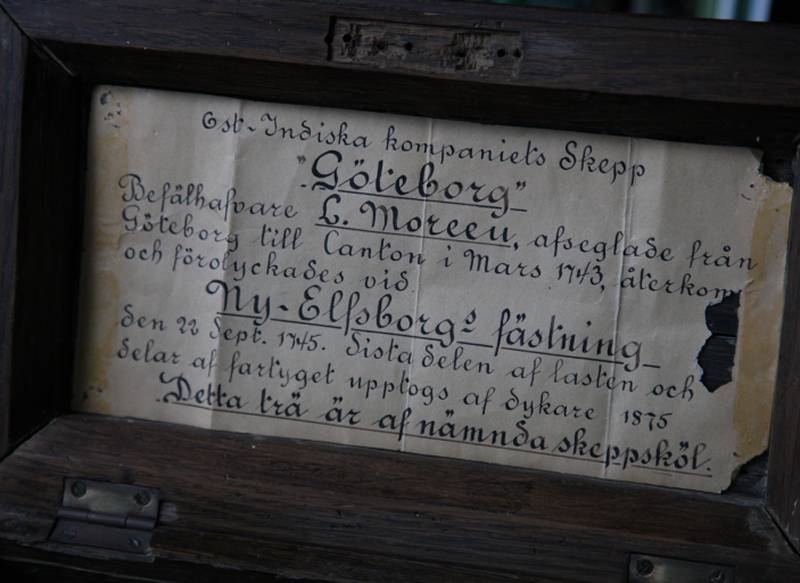 Ost-Indiska kompaniets Skepp
"Göteborg"
Befälhafvare L. Moreeu, afseglade från
Göteborg till Canton i Mars 1743, återkom
och förolyckades vid
Ny-Elfsborgs fästning
den 22 Sept. 1745. Sista delen af lasten och
delar af fartyget upptogs af dykare 1875
Detta trä är af nämnda skeppsköl.